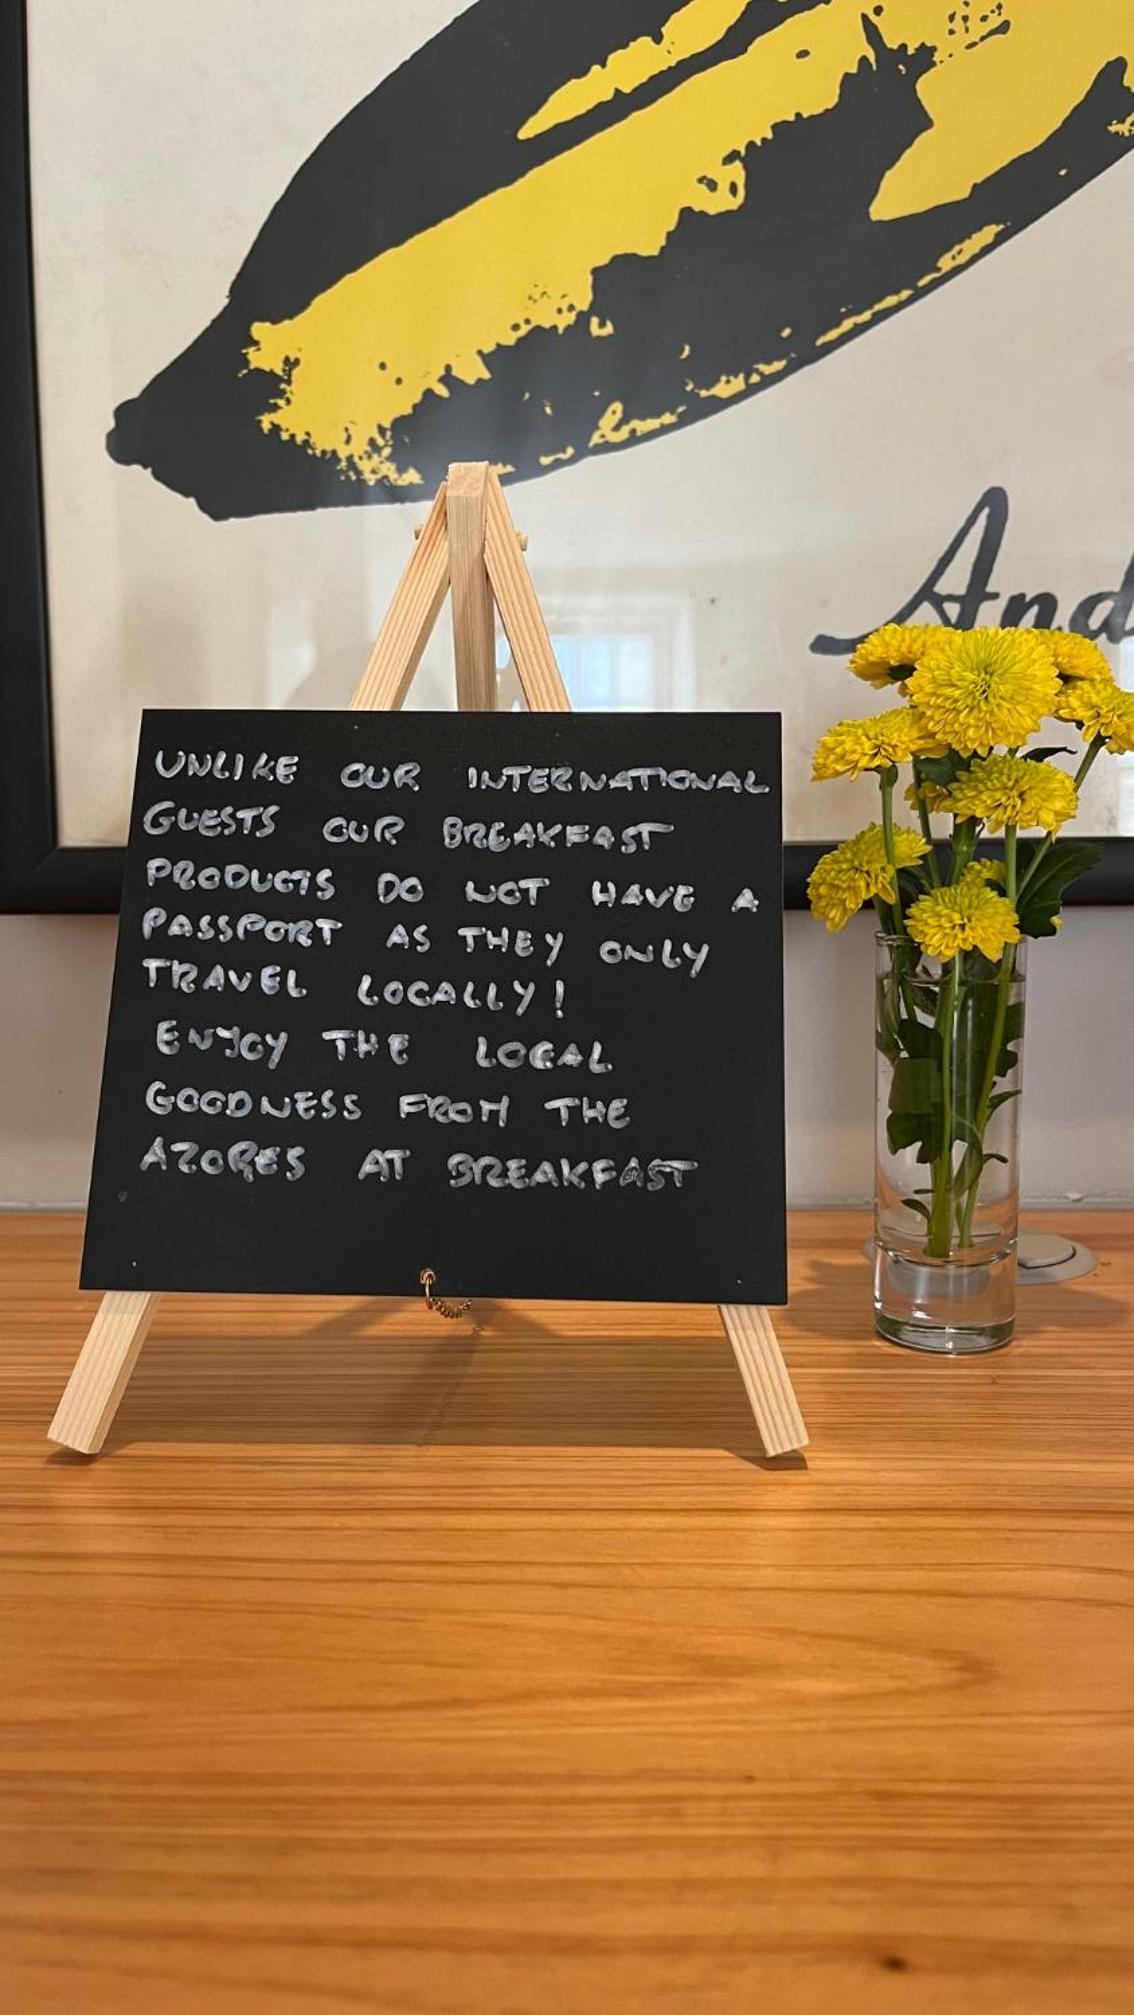 And
UNLIKE OUR INTERNATIONAL
GUESTS OUR BREAKFAST
PRODUCTS DO NOT HAVE A
PASSPORT AS THEY ONLY
TRAVEL LOCALLY!
ENJOY THE LOCAL
GOODNESS FROM THE
AZORES AT BREAKFAST